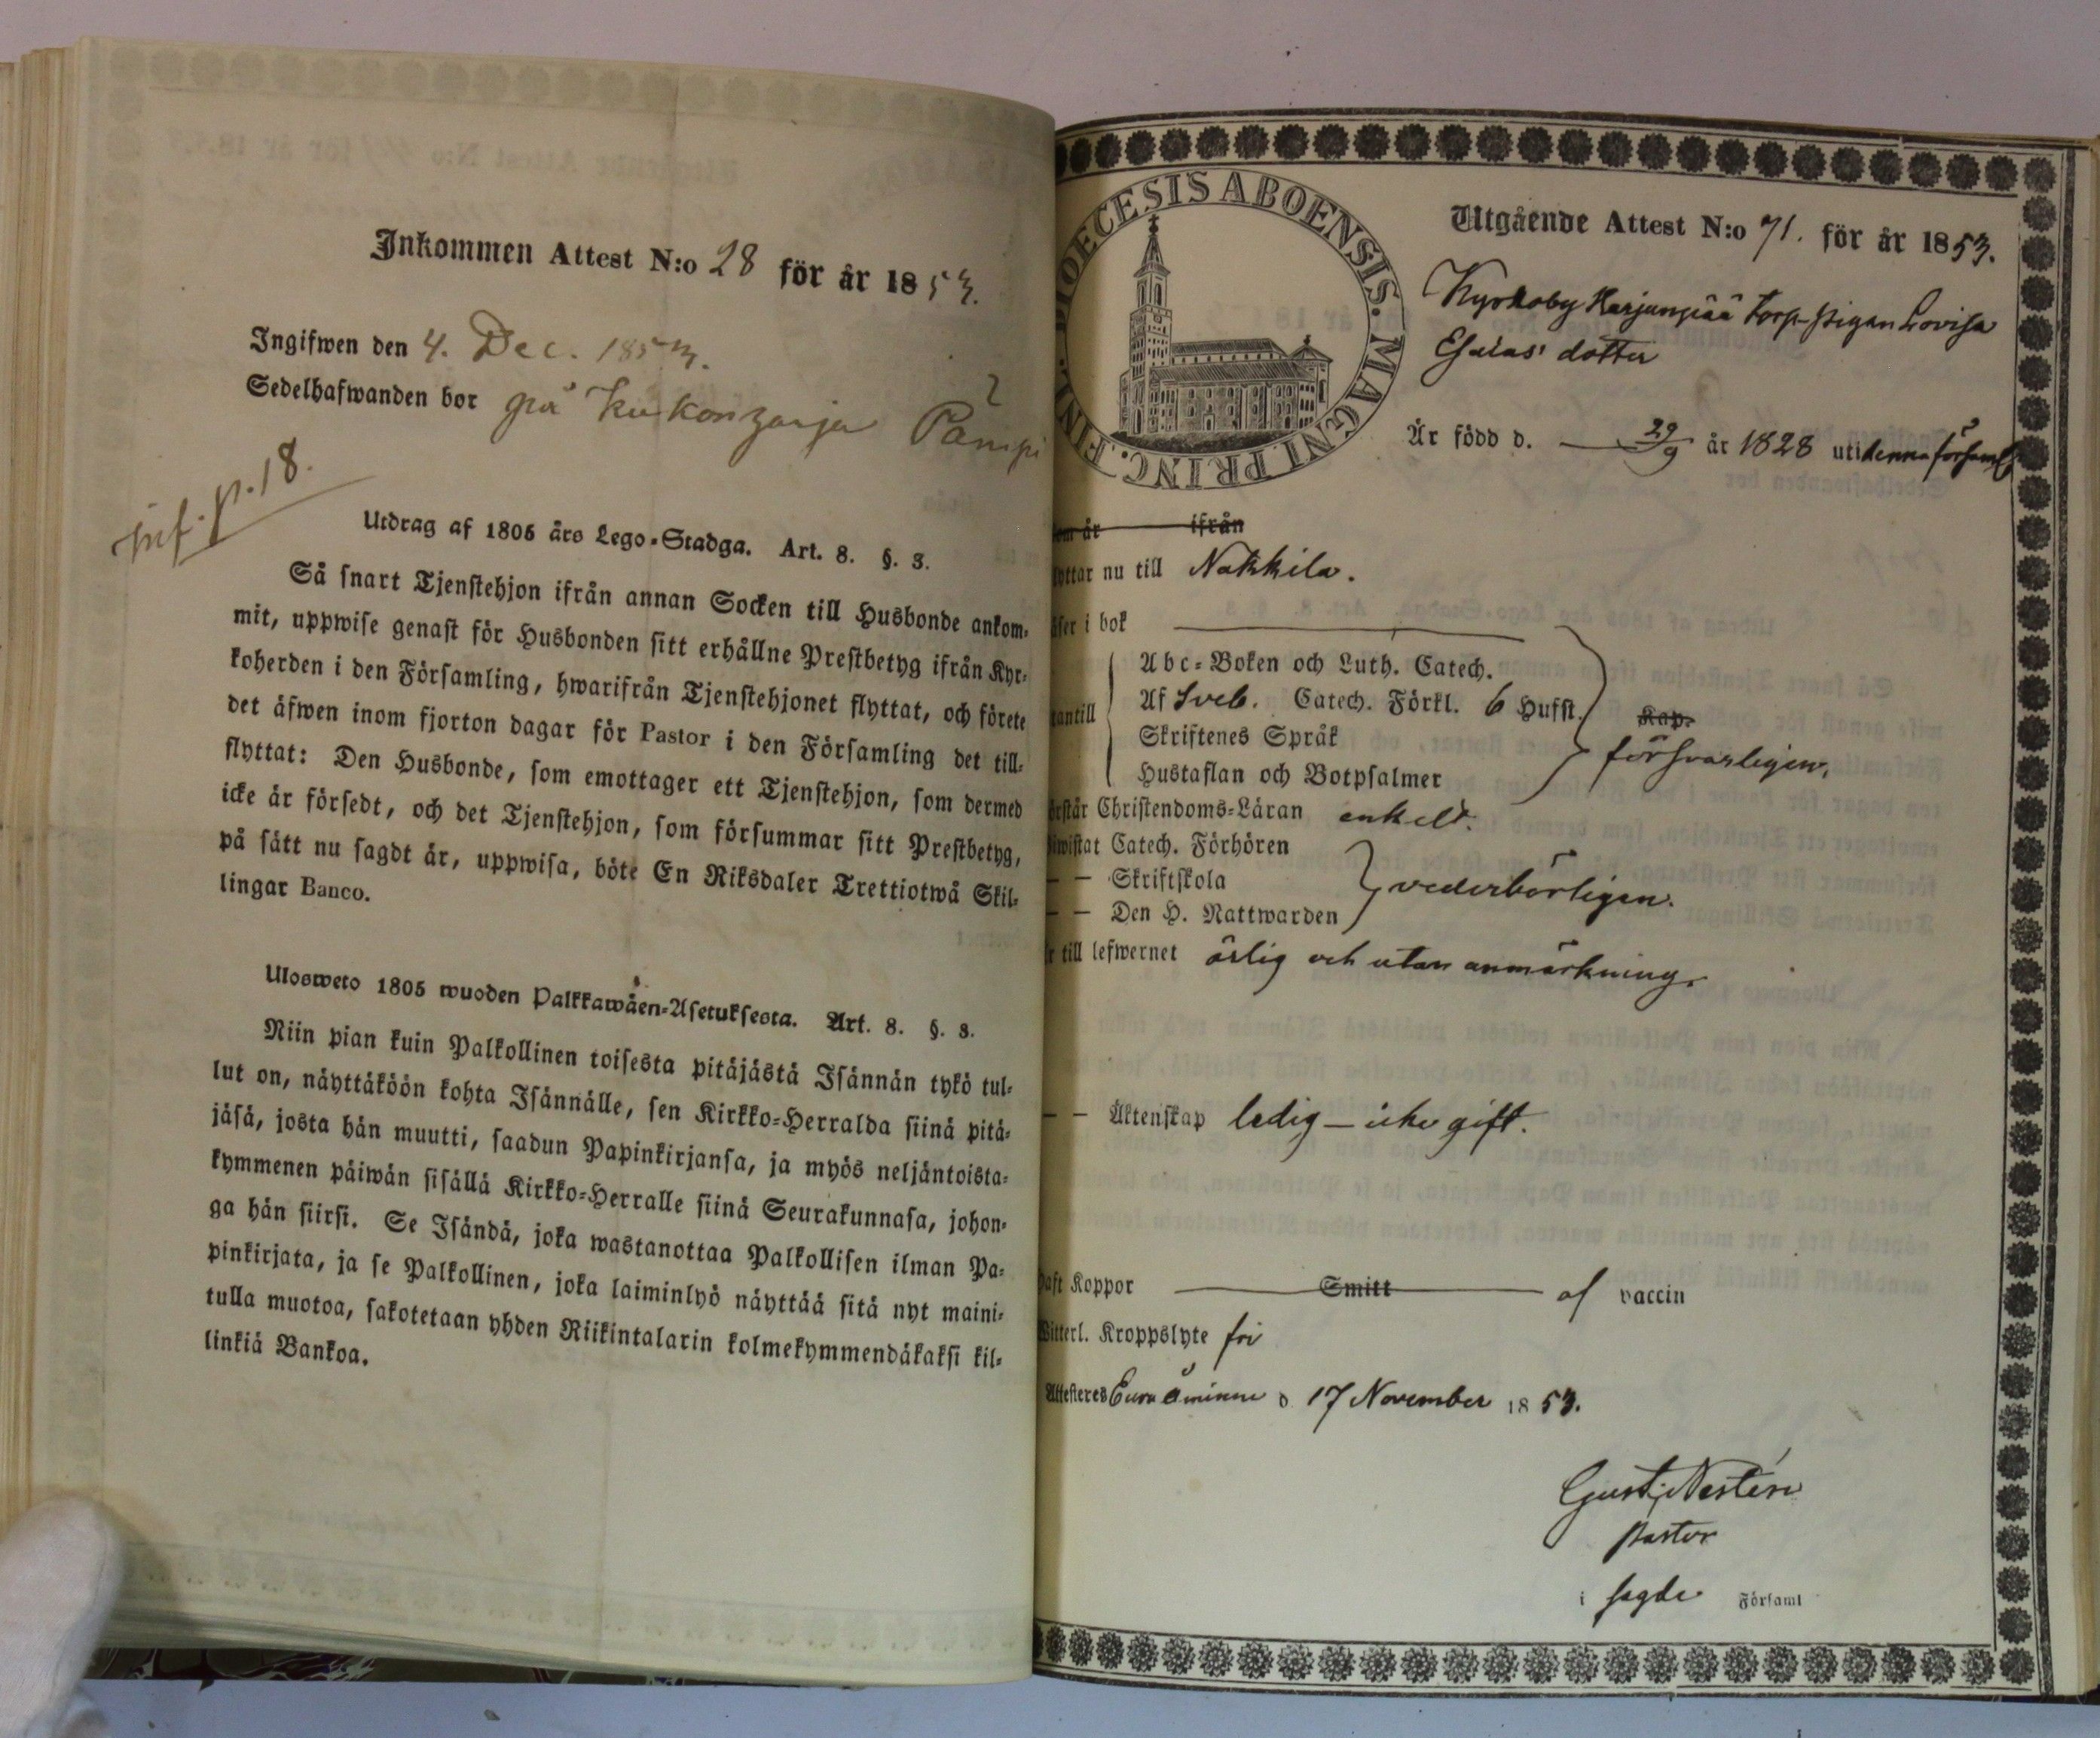 Inkommen Attest N:o 28 för år 1853.
Ingifwen den 4. Dec. 1853.
Sedelhafwanden bor på Kukonzarja
inf. p. 18.
Utdrag af 1805 års Lego-Stadga. Art. 8. §. 3.
Så snart Tjenstehjon ifrån annan Socken till Husbonde ankom-
mit, uppwise genast för Husbonden sitt erhållne Prestbetyg ifrån Kyr-
koherden i den Församling, hwarifrån Tjenstehjonet flyttat, och förete
det äfwen inom fjorton dagar för Pastor i den Församling det till-
flyttat: Den Husbonde, som emottager ett Tjenstehjon, som dermed
icke är försedt, och det Tjenstehjon, som försummar sitt Prestbetyg,
på sätt nu sagdt är, uppwisa, böte En Riksdaler Trettiotwå Skil-
lingar Banco.
Ulosweto 1805 wuoden Palkkawäen-Asetuksesta. Art. 8. §. 3.
Niin pian kuin Palkollinen toisesta pitäjästä Isännän tykö tul-
lut on, näyttäköön kohta Isännälle, sen Kirkko-Herralda siinä pitä-
jäsä, josta hän muutti, saadun Papinkirjansa, ja myös neljäntoista-
kymmenen päiwän sisällä Kirkko-Herralle siinä Seurakunnasa, johon-
ga hän siirsi. Se Isändä, joka wastanottaa Palkollisen ilman Pa-
pinkirjata, ja se Palkollinen, joka laiminlyö näyttää sitä nyt maini-
tulla muotoa, sakotetaan yhden Riikintalarin kolmekymmendäkaksi kil-
linkiä Bankoa.
DIOECESIS ABOENSIS. MAGNI PRINC. FINL.
Utgående Attest N:o 71. för år 1853.
Kyrkoby Harjunpää torp-pigan Lovisa
Esaias' dotter
Är född d. 29/9 år 1828 uti denna församl
om år ifrån
yttar nu till Nakkila.
äser i bok
Abc-Boken och Luth. Catech.
antill Af Sveb. Catech. Förkl. 6 Hufst. Kap.
Skriftenes Språk försvarligen.
Hustaflan och Botpsalmer
örstår Christendoms-Läran enkelt.
iwistat Catech. Förhören
— — Skriftskola vederbörligen.
— — Den H. Nattwarden
r till lefwernet ärlig och utan anmärkning.
— — Äktenskap ledig — icke gift.
haft Koppor Smitt af vaccin
Witterl. Kroppslyte fri
Attesteres Eura Åminne d 17 November 1853.
Gust. Nestén
Pastor
i sagde Församl